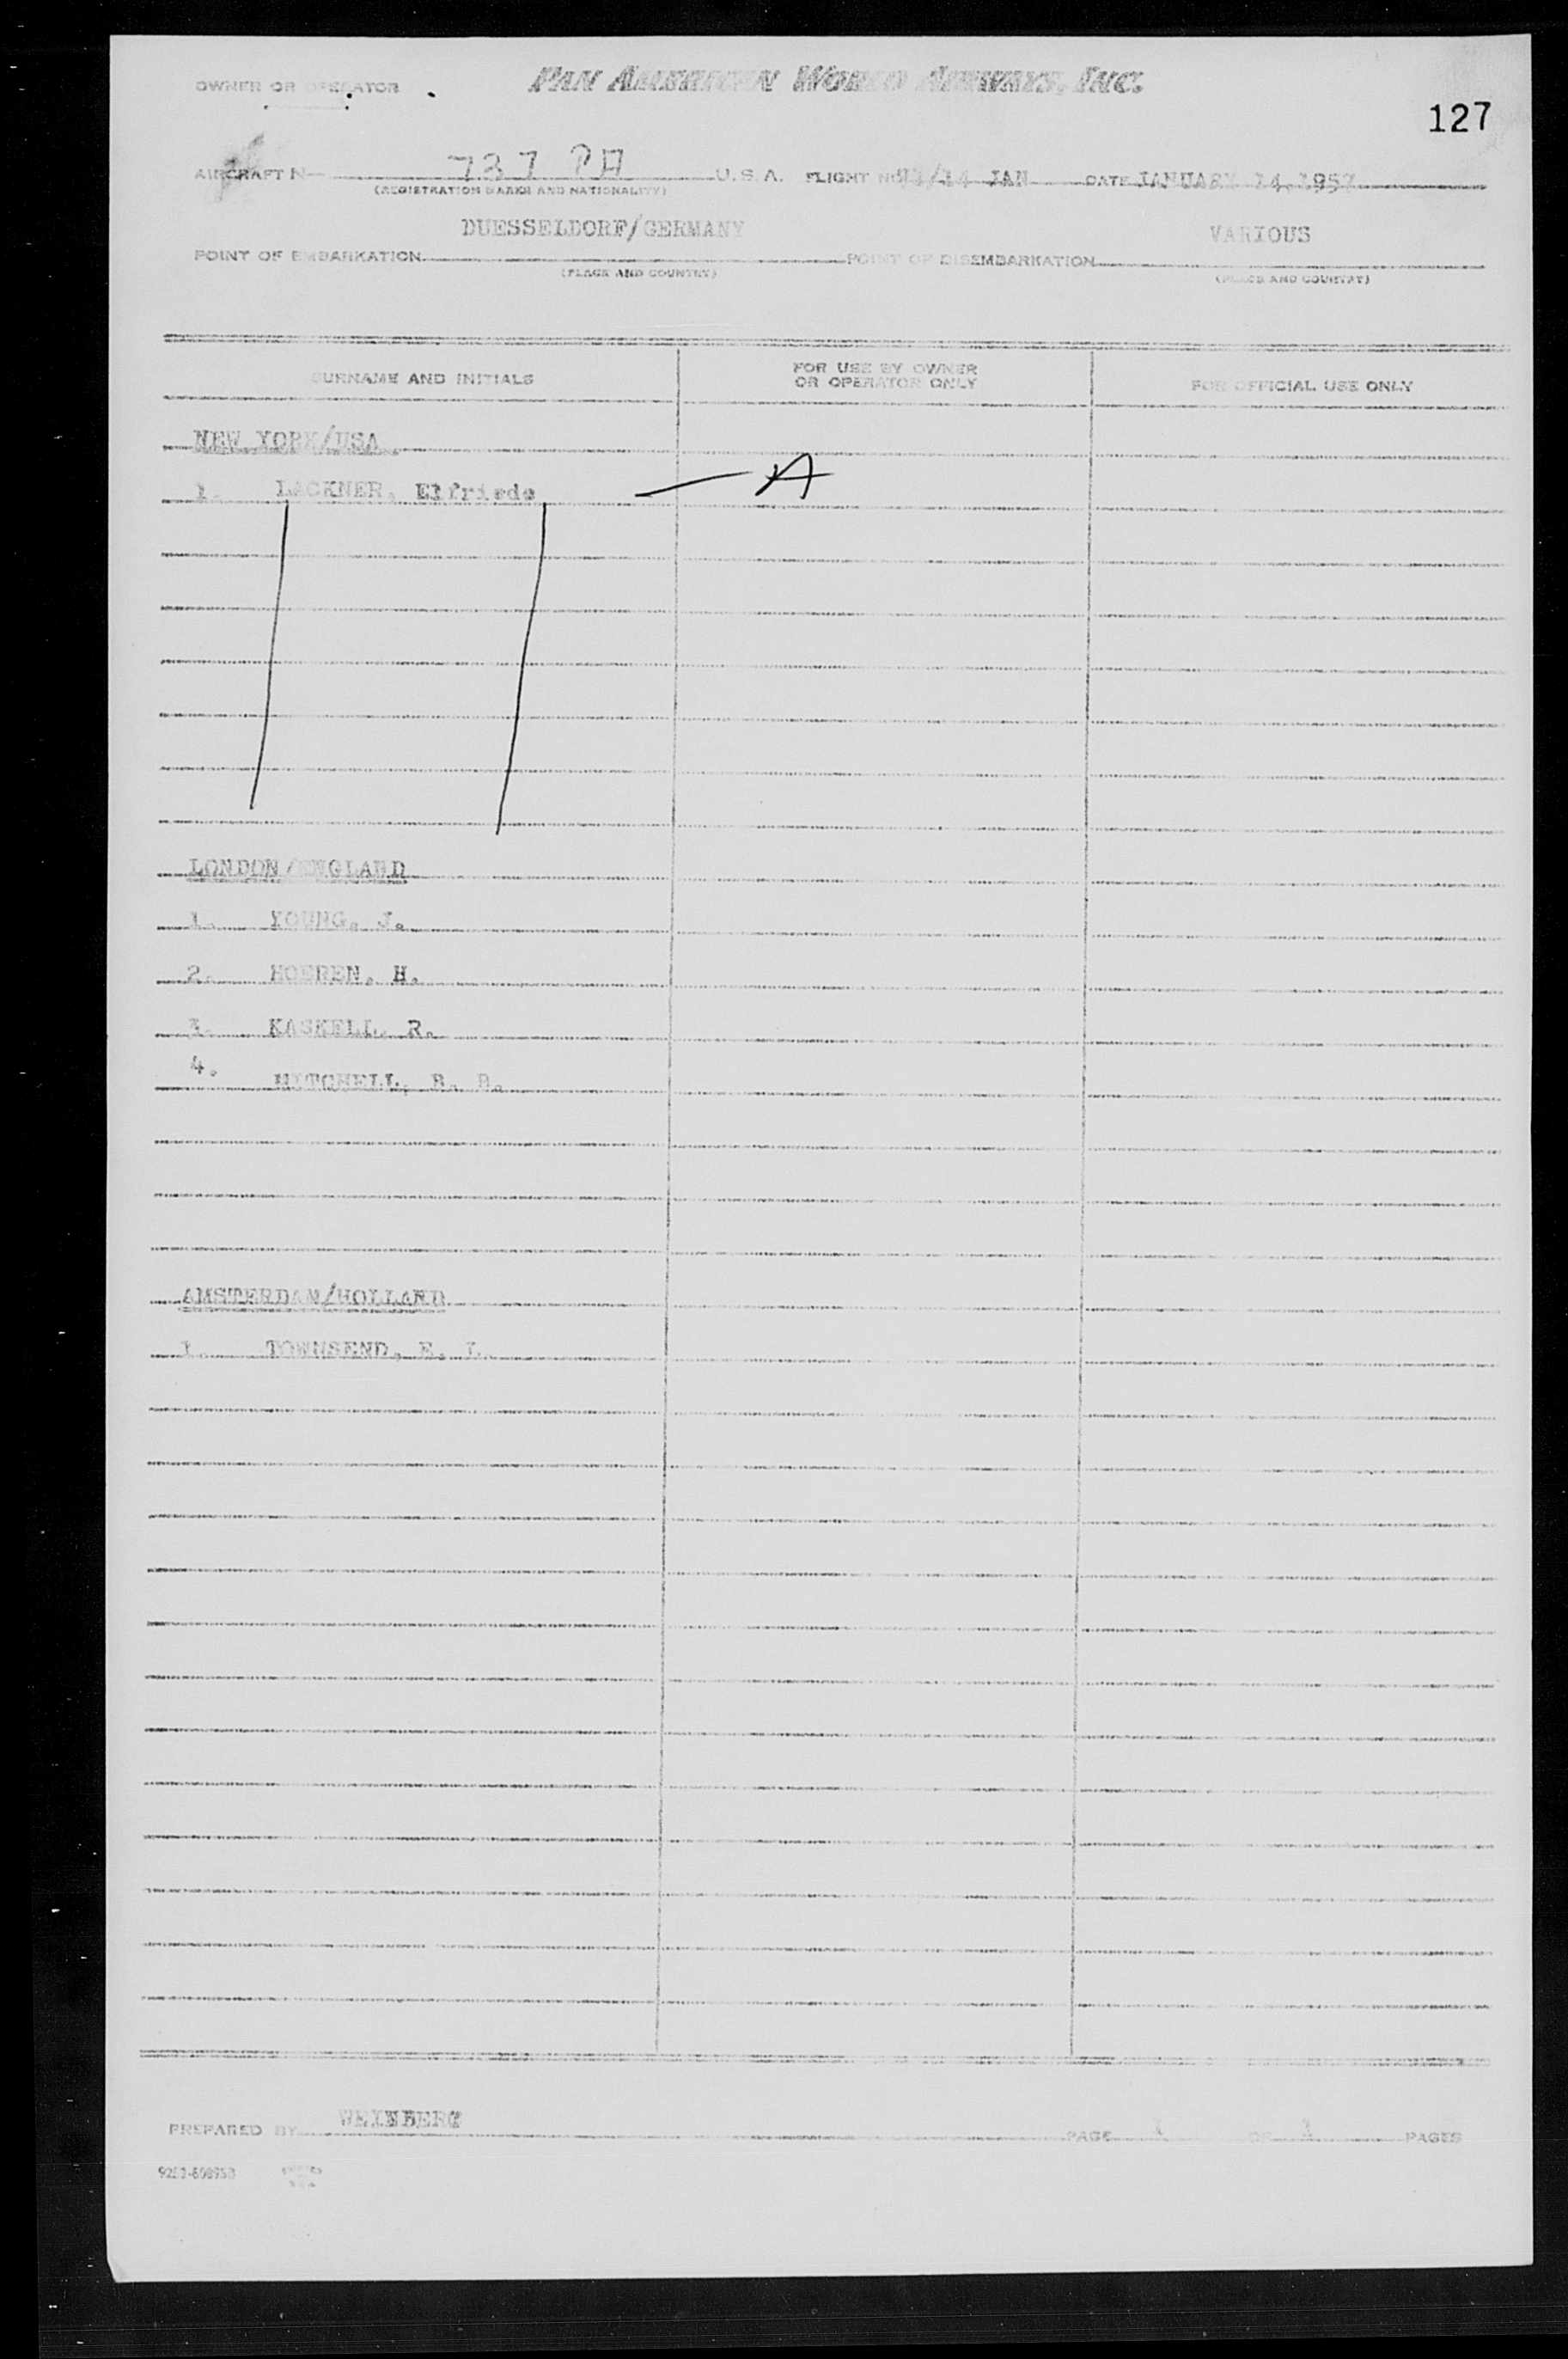 OWNER OR OPERATOR PAN AMERICAN WORLD AIRWAYS, INC.
127
AIRCRAFT N 737 PA U.S.A. FLIGHT NO /14 JAN DATE JANUARY 14, 1957
(REGISTRATION MARKS AND NATIONALITY)
DUESSELDORF/GERMANY VARIOUS
POINT OF EMBARKATION POINT OF DISEMBARKATION
(PLACE AND COUNTRY) (PLACE AND COUNTRY)
SURNAME AND INITIALS FOR USE BY OWNER OR OPERATOR ONLY FOR OFFICIAL USE ONLY
NEW YORK/USA
1. LACKNER, Elfriede — A
LONDON/ENGLAND
1. YOUNG, J.
2. HOEREN, H.
3. KASKELL, R.
4. MITCHELL, B. B.
AMSTERDAM/HOLLAND
1. TOWNSEND, E. L.
PREPARED BY WEINBERG PAGE 1 OF 1 PAGES